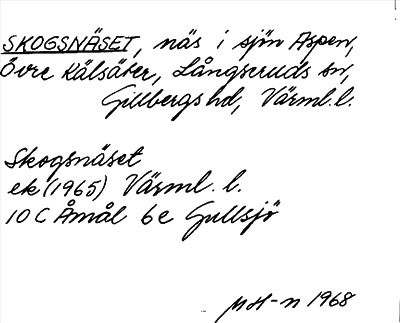 SKOGSNÄSET, näs i sjön Aspen,
Övre Kälsäter, Långseruds sn,
Gillbergs hd, Värml. l.
Skogsnäset
ek (1965) Värml. l.
10 C Åmål 6e Gullsjö
MH-n 1968